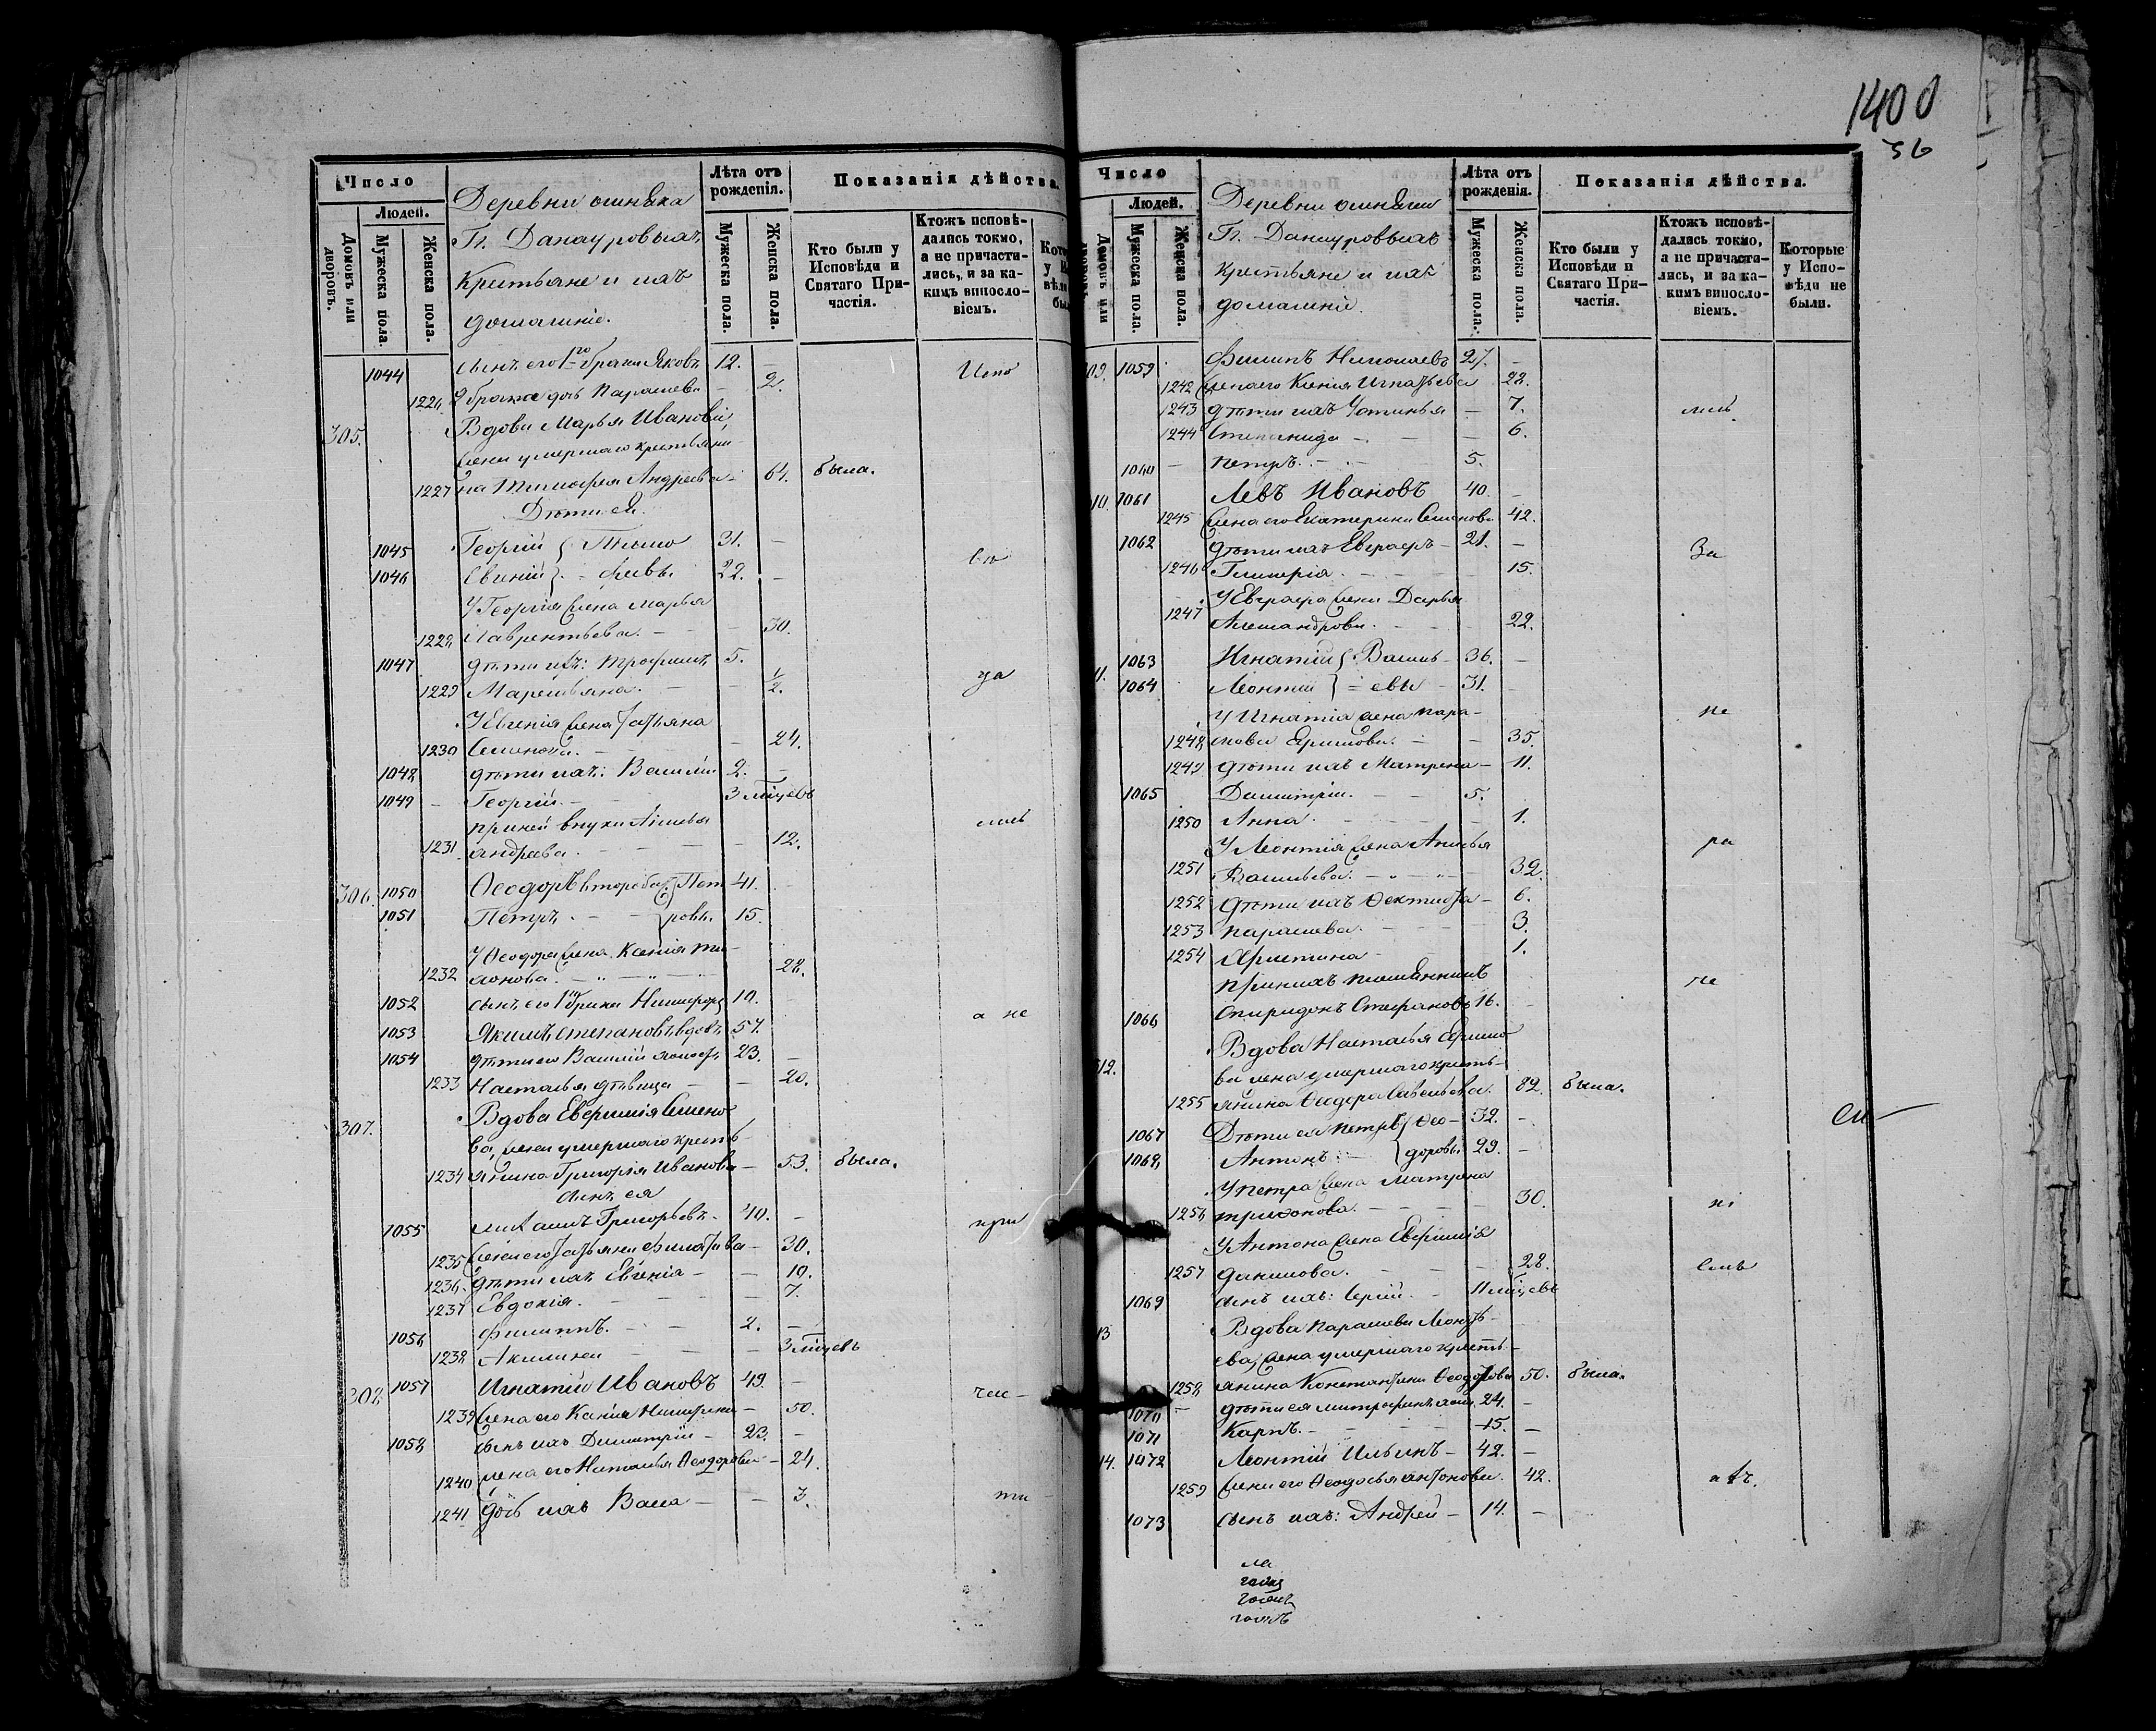 1400
36
Число
Людей.
Домовъ или дворовъ.
Мужеска пола.
Женска пола.
Деревни
Гг. Данауровыхъ
Крестьяне и ихъ
домашніе.
Лѣта отъ рожденія.
Мужеска пола.
Женска пола.
Показанія дѣйства.
Кто были у Исповѣди и Святаго Причастія.
Ктожъ исповѣдались токмо, а не причастились, и за какимъ винословіемъ.
1044 сынъ его 1го брата Яковъ 12. —
1226 2 брата дочь Парасковь — 2.
305. Вдова Марья Иванова,
жена умершаго крестьяни-
1227 на Тимофея Андреева — 64. была.
Дѣти ея:
1045 Георгій } Тимо 31. —
1046 Евгеній } феевы 22. —
У Георгія жена Марья
1228 Лаврентьева. — 30.
1047 дѣти ихъ: Трофимъ 5.
1229 Маремьяна. — 1/2.
У Евгенія жена Татьяна
1230 Семенова. — 24.
1048 дѣти ихъ: Василій 2. —
1049 Георгій. — 3 мѣсцевъ
при ней внука
1231 Андреева. — 12.
306. 1050 Ѳеодоръ второбр. } Пет 41. —
1051 Петръ. — } ровы. 15.
У Ѳеодора жена Ксенія
1232 28.
1052 сынъ его 1го брака Никифоръ 10. —
1053 Якимъ Степановъ вдовъ 57.
1054 дѣти его Василій холостъ 23. —
1233 Наталья дѣвица — 20.
307. Вдова Евфимія Семено
ва, жена умершаго кресть-
1234 янина Григорія Иванова — 53. была.
Сынъ ея
1055 Михаилъ Григорьевъ. 40. —
1235 жена его Татьяна Филатьева — 30.
1236 дѣти ихъ Евгенія — 10.
1237 Евдокія. — 7.
1056 Филиппъ. — 2. —
1238 Акилина — 3 мѣсцевъ
308. 1057 Игнатій Ивановъ 49. —
1239 жена его Ксенія — 50.
1058 сынъ ихъ Димитрій — 23. —
1240 жена его Наталья Ѳеодорова — 24.
1241 дочь ихъ Васса — 3.
Испо
вѣ
да
лись
а не
при
час-
ти
Число
Людей.
Домовъ или
Мужеска пола.
Женска пола.
Деревни
Гг. Данауровыхъ
крестьяне и ихъ
домашніе.
Лѣта отъ рожденія.
Мужеска пола.
Женска пола.
Показанія дѣйства.
Кто были у Исповѣди и Святаго Причастія.
Ктожъ исповѣдались токмо, а не причастились, и за какимъ винословіемъ.
Которые у Исповѣди не были.
09. 1059 Филипъ Николаевъ 27. —
1242 жена его Ксенія Игнатьева 22.
1243 дѣти ихъ Устинья — 7.
1244 Степанида — 6.
1060 Петръ. — 5.
10. 1061 Левъ Ивановъ 40. —
1245 жена его Екатерина Семенова 42.
1062 дѣти ихъ Евграфъ — 21. —
1246 Гликерія. — 15.
У Евграфа жена Дарья
1247 Александрова. — 22.
11. 1063 Игнатій } Василь- 36. —
1064 Леонтій } евы 31.
У Игнатія жена Пара-
1248 скова Ефимова. — 35.
1249 дѣти ихъ Матрена — 11.
1065 Димитрій. — 5.
1250 Анна. — 1.
У Леонтія жена
1251 Васильева. — 32.
1252 дѣти ихъ Ѳектиста — 6.
1253 Парасковя. — 3.
1254 Христина — 1.
при нихъ племянникъ
1066 Спиридонъ Стефановъ 16. —
312. Вдова Наталья Ефимо
ва жена умершаго кресть-
1255 янина Ѳеодора Савельева. 82. была.
1067 Дѣти ея Петръ } Ѳео- 32. —
1068 Антонъ. — } доровы 29. —
У Петра жена Матрона
1256 Трифонова. — 30.
У Антона жена Евфимія
1257 Данилова. — 28.
1069 сынъ ихъ: Сергій. — 11 мѣсцевъ
13 Вдова Парасковя Леонть-
ева, жена умершаго кресть-
1258 янина Константина Ѳеодорова 50. была.
1070 дѣти ея Митрофанъ 24. —
1071 Карпъ. — 15. —
14. 1072 Леонтій Ильинъ — 42. —
1259 жена его Ѳеодосья Антонова. 42.
1073 сынъ ихъ: Андрей — 14. —
лись
За
не
ра